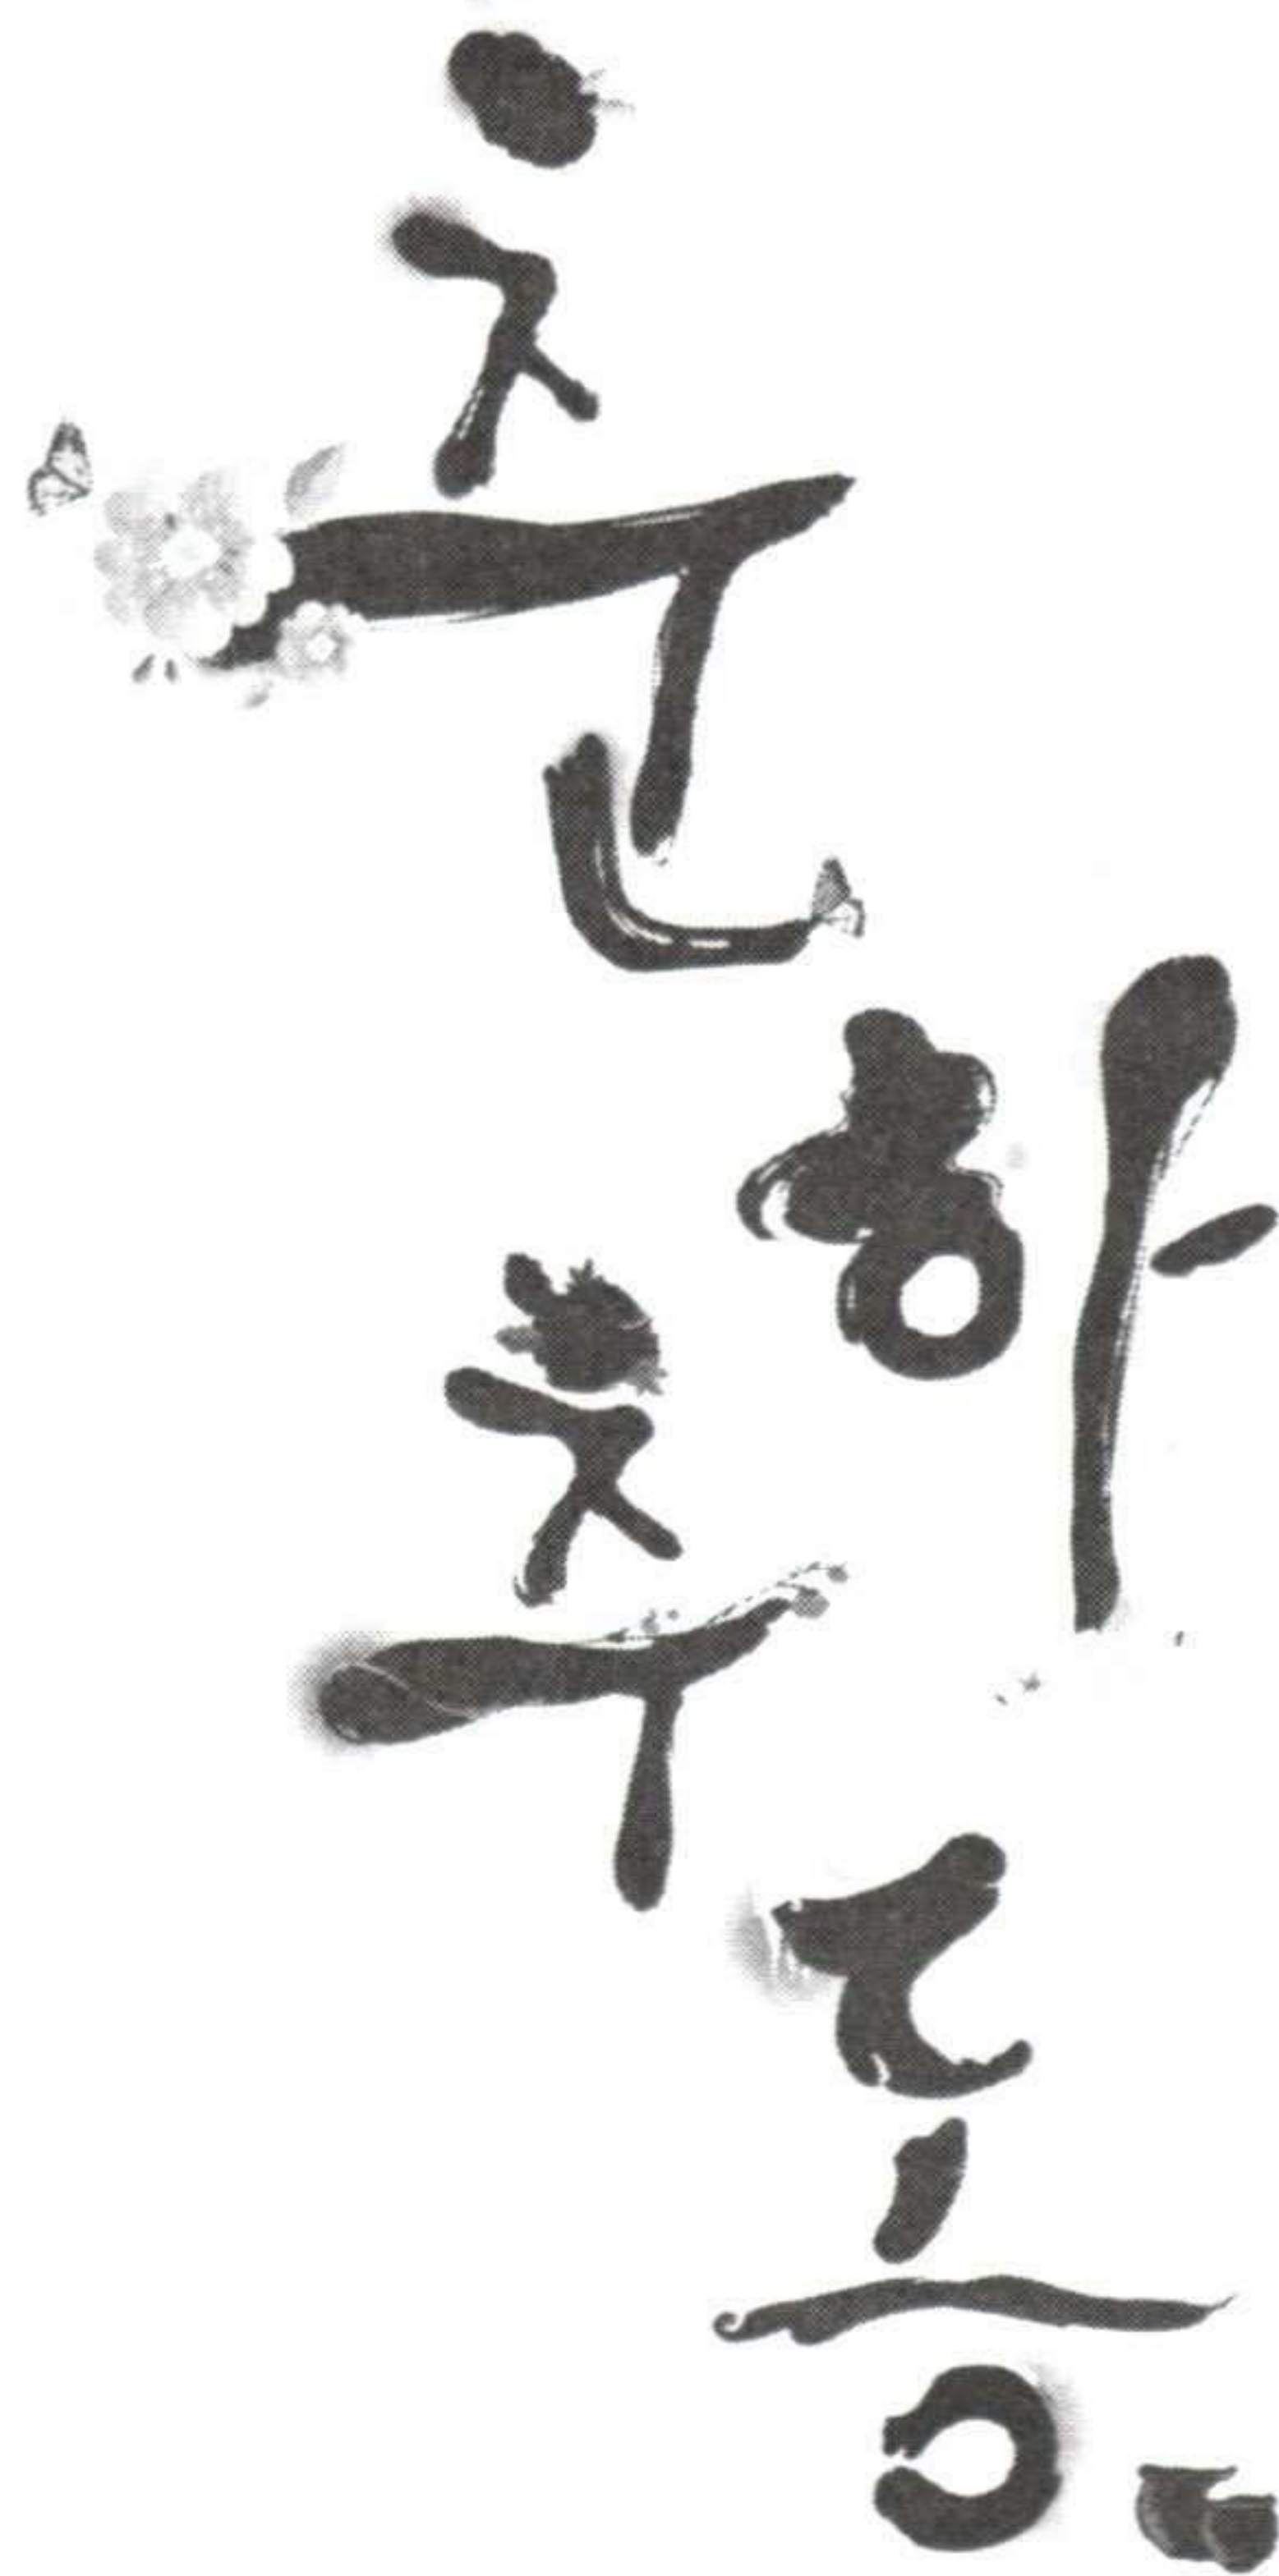 춘하추동